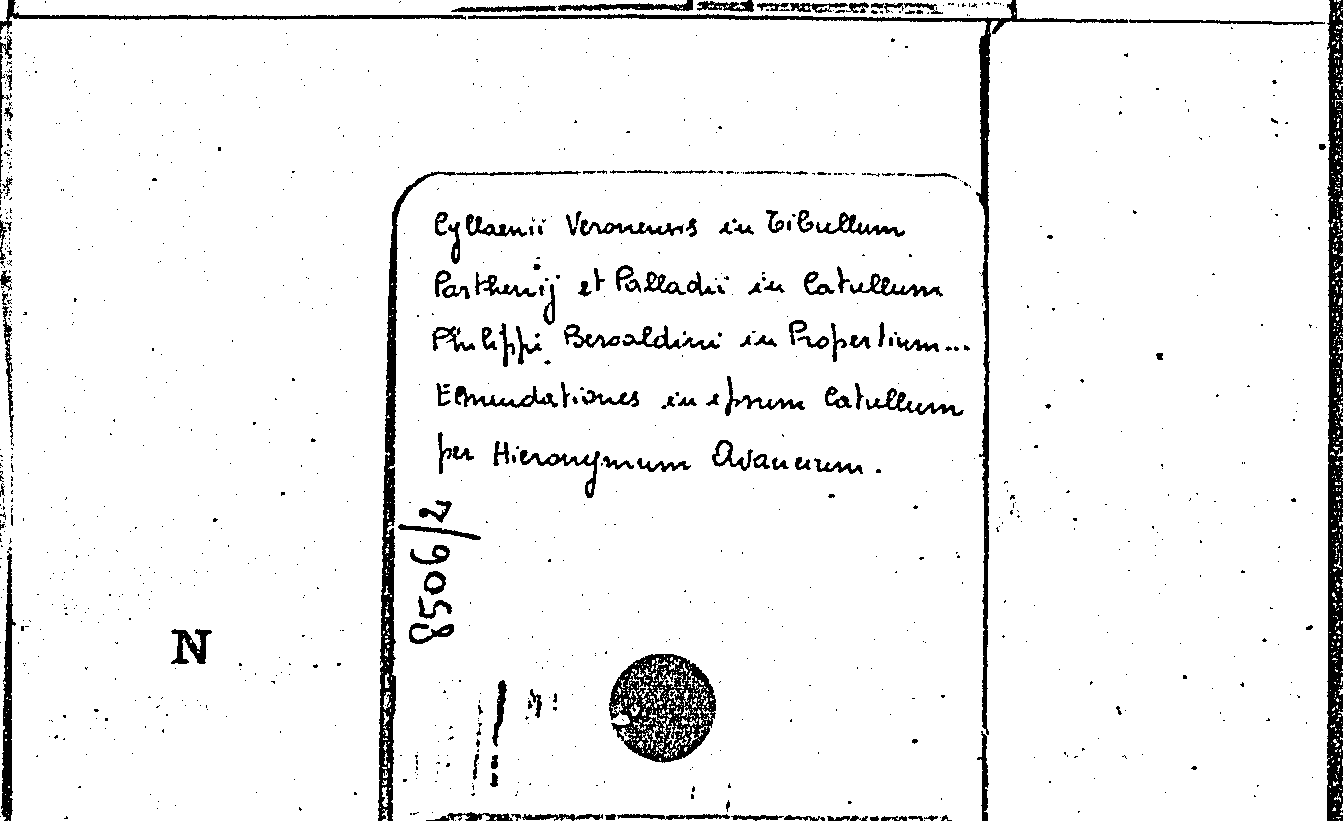 Cyllaenii Veronensis in Tibullum
Parthenij et Palladii in Catullum
Philippi Beroaldini in Propertium...
Emendationes in epsum Catullum
per Hieronymum Avancium.
8506/2
N